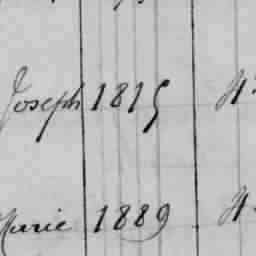 Joseph 1815
Marie 1889